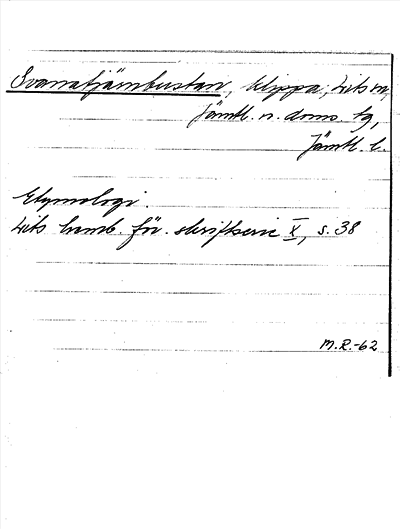 Svanatjärnbustan, klippa, Lits sn,
Jämtl. n. doms. tg,
Jämtl. l.
Etymologi.
Lits hemb. för. skriftserie X, s. 38
M.R.-62